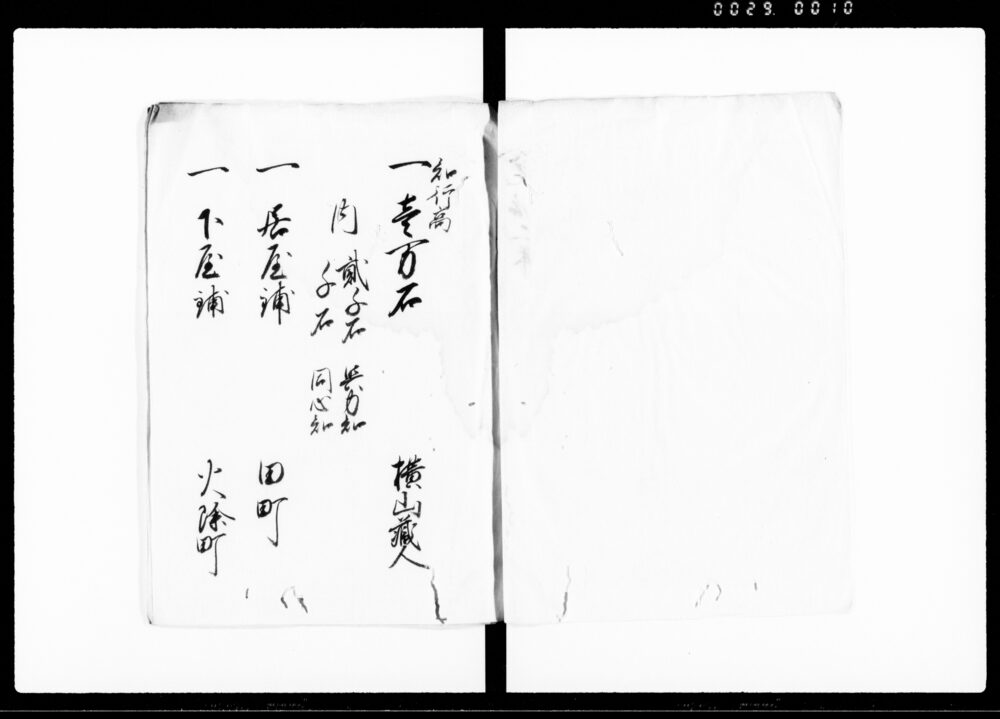 0029.0010
知行高
一壱万石 横山蔵人
内 弐千石 与力知
千石 同心知
一居屋鋪 田町
一下屋鋪 火除町